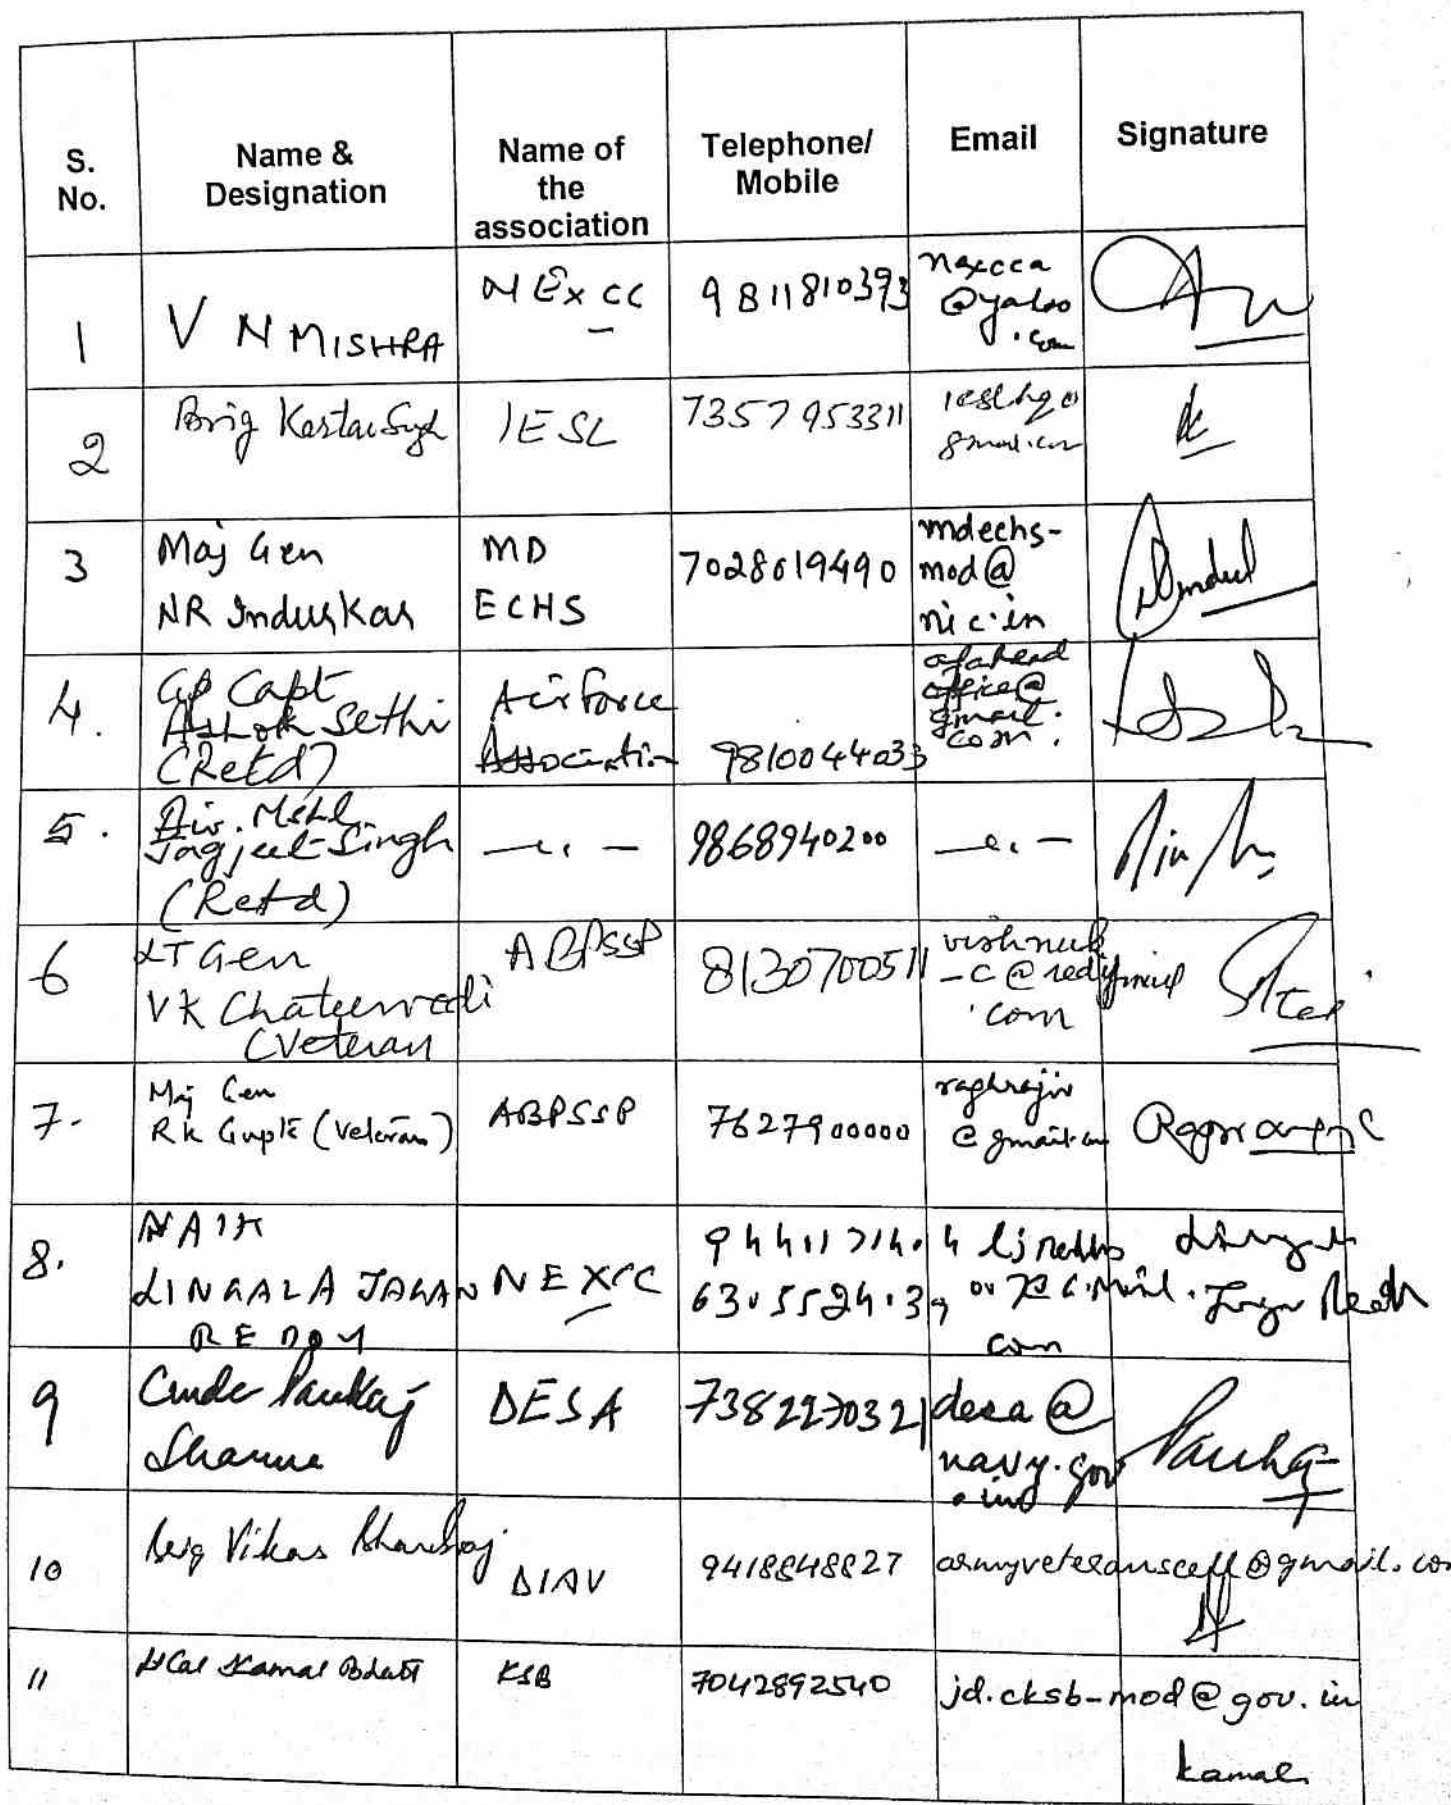 S. No.
Name & Designation
Name of the association
Telephone/ Mobile
Email
Signature
1
V N MISHRA
NExCC
9811810393
nexcca
@yahoo
.com
2
Brig Kartar Singh
IESL
7357953311
ieslhq@
gmail.com
3
Maj Gen
NR Indurkar
MD
ECHS
7028619490
mdechs-
mod@
nic.in
4.
Gp Capt
Ashok Sethi
(Retd)
Air Force
Association
9810044033
afahead
office@
gmail.
com.
5.
Air. Mshl
Jagjeet Singh
(Retd)
—〃—
9868940200
—〃—
6
LT Gen
VK Chaturvedi
(Veteran
ABPSSP
8130700511
-c@rediffmail
.com
7.
Maj Gen
RK Gupta (Veteran)
ABPSSP
7627900000
@gmail.com
8.
NAIK
LINGALA JAGAN
REDDY
NEXCC
com
9
Cmde Pankaj
Sharma
DESA
7382270321
desa@
navy.gov
Pankaj
10
Brig Vikas Bhardwaj
DIAV
9418848827
armyveteranscell@gmail.com
11
Lt Col Kamal Bhatt
KSB
7042892540
jd.cksb-mod@gov.in
Kamal